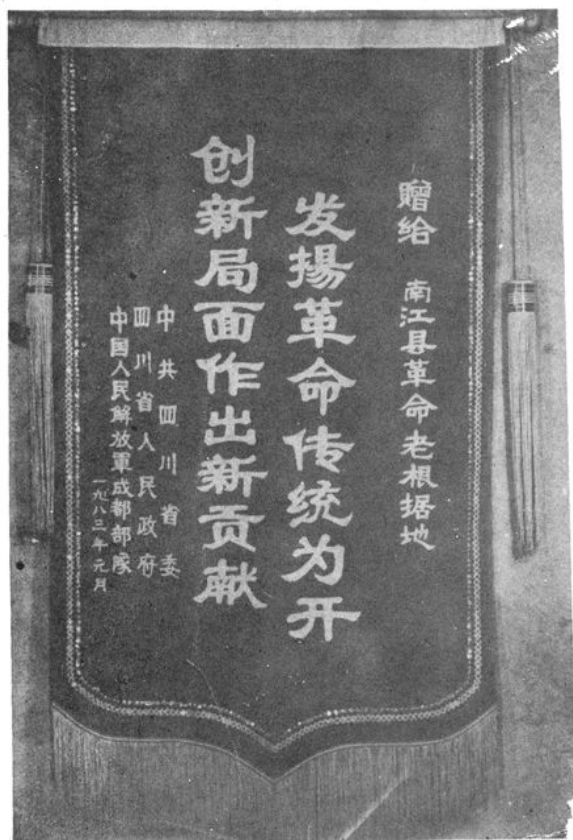 贈给 南江县革命老根据地
发揚革命传统为开
创新局面作出新贡献
中共四川省委
四川省人民政府
中国人民解放軍成都部隊
一九八三年元月